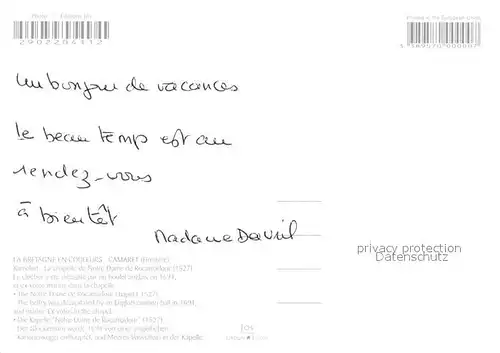 Photo Editions Jos
2902204112
Printed in the European Union
Un bonjour de vacances
le beau temps est au
rendez-vous
à bientôt
Madame David
privacy protection
Datenschutz
LA BRETAGNE EN COULEURS - CAMARET (Finistère)
Kameled - La chapelle de Notre-Dame de Rocamadour (1527)
Le clocher a été
par un boulet anglais en 1694,
ex-voto marins dans la chapelle.
• The Notre-Dame de Rocamadour chapel (1527)
The belfry was decapitated by an English cannon ball in 1694,
and marine Ex-votos in the chapel.
• Die Kapelle "Notre-Dame de Rocamadour" (1527).
Der Glockenturm wurde 1694 von einer englischen
Kanonenkugel enthauptet, und Meeres Votivbilder in der Kapelle.
Jos